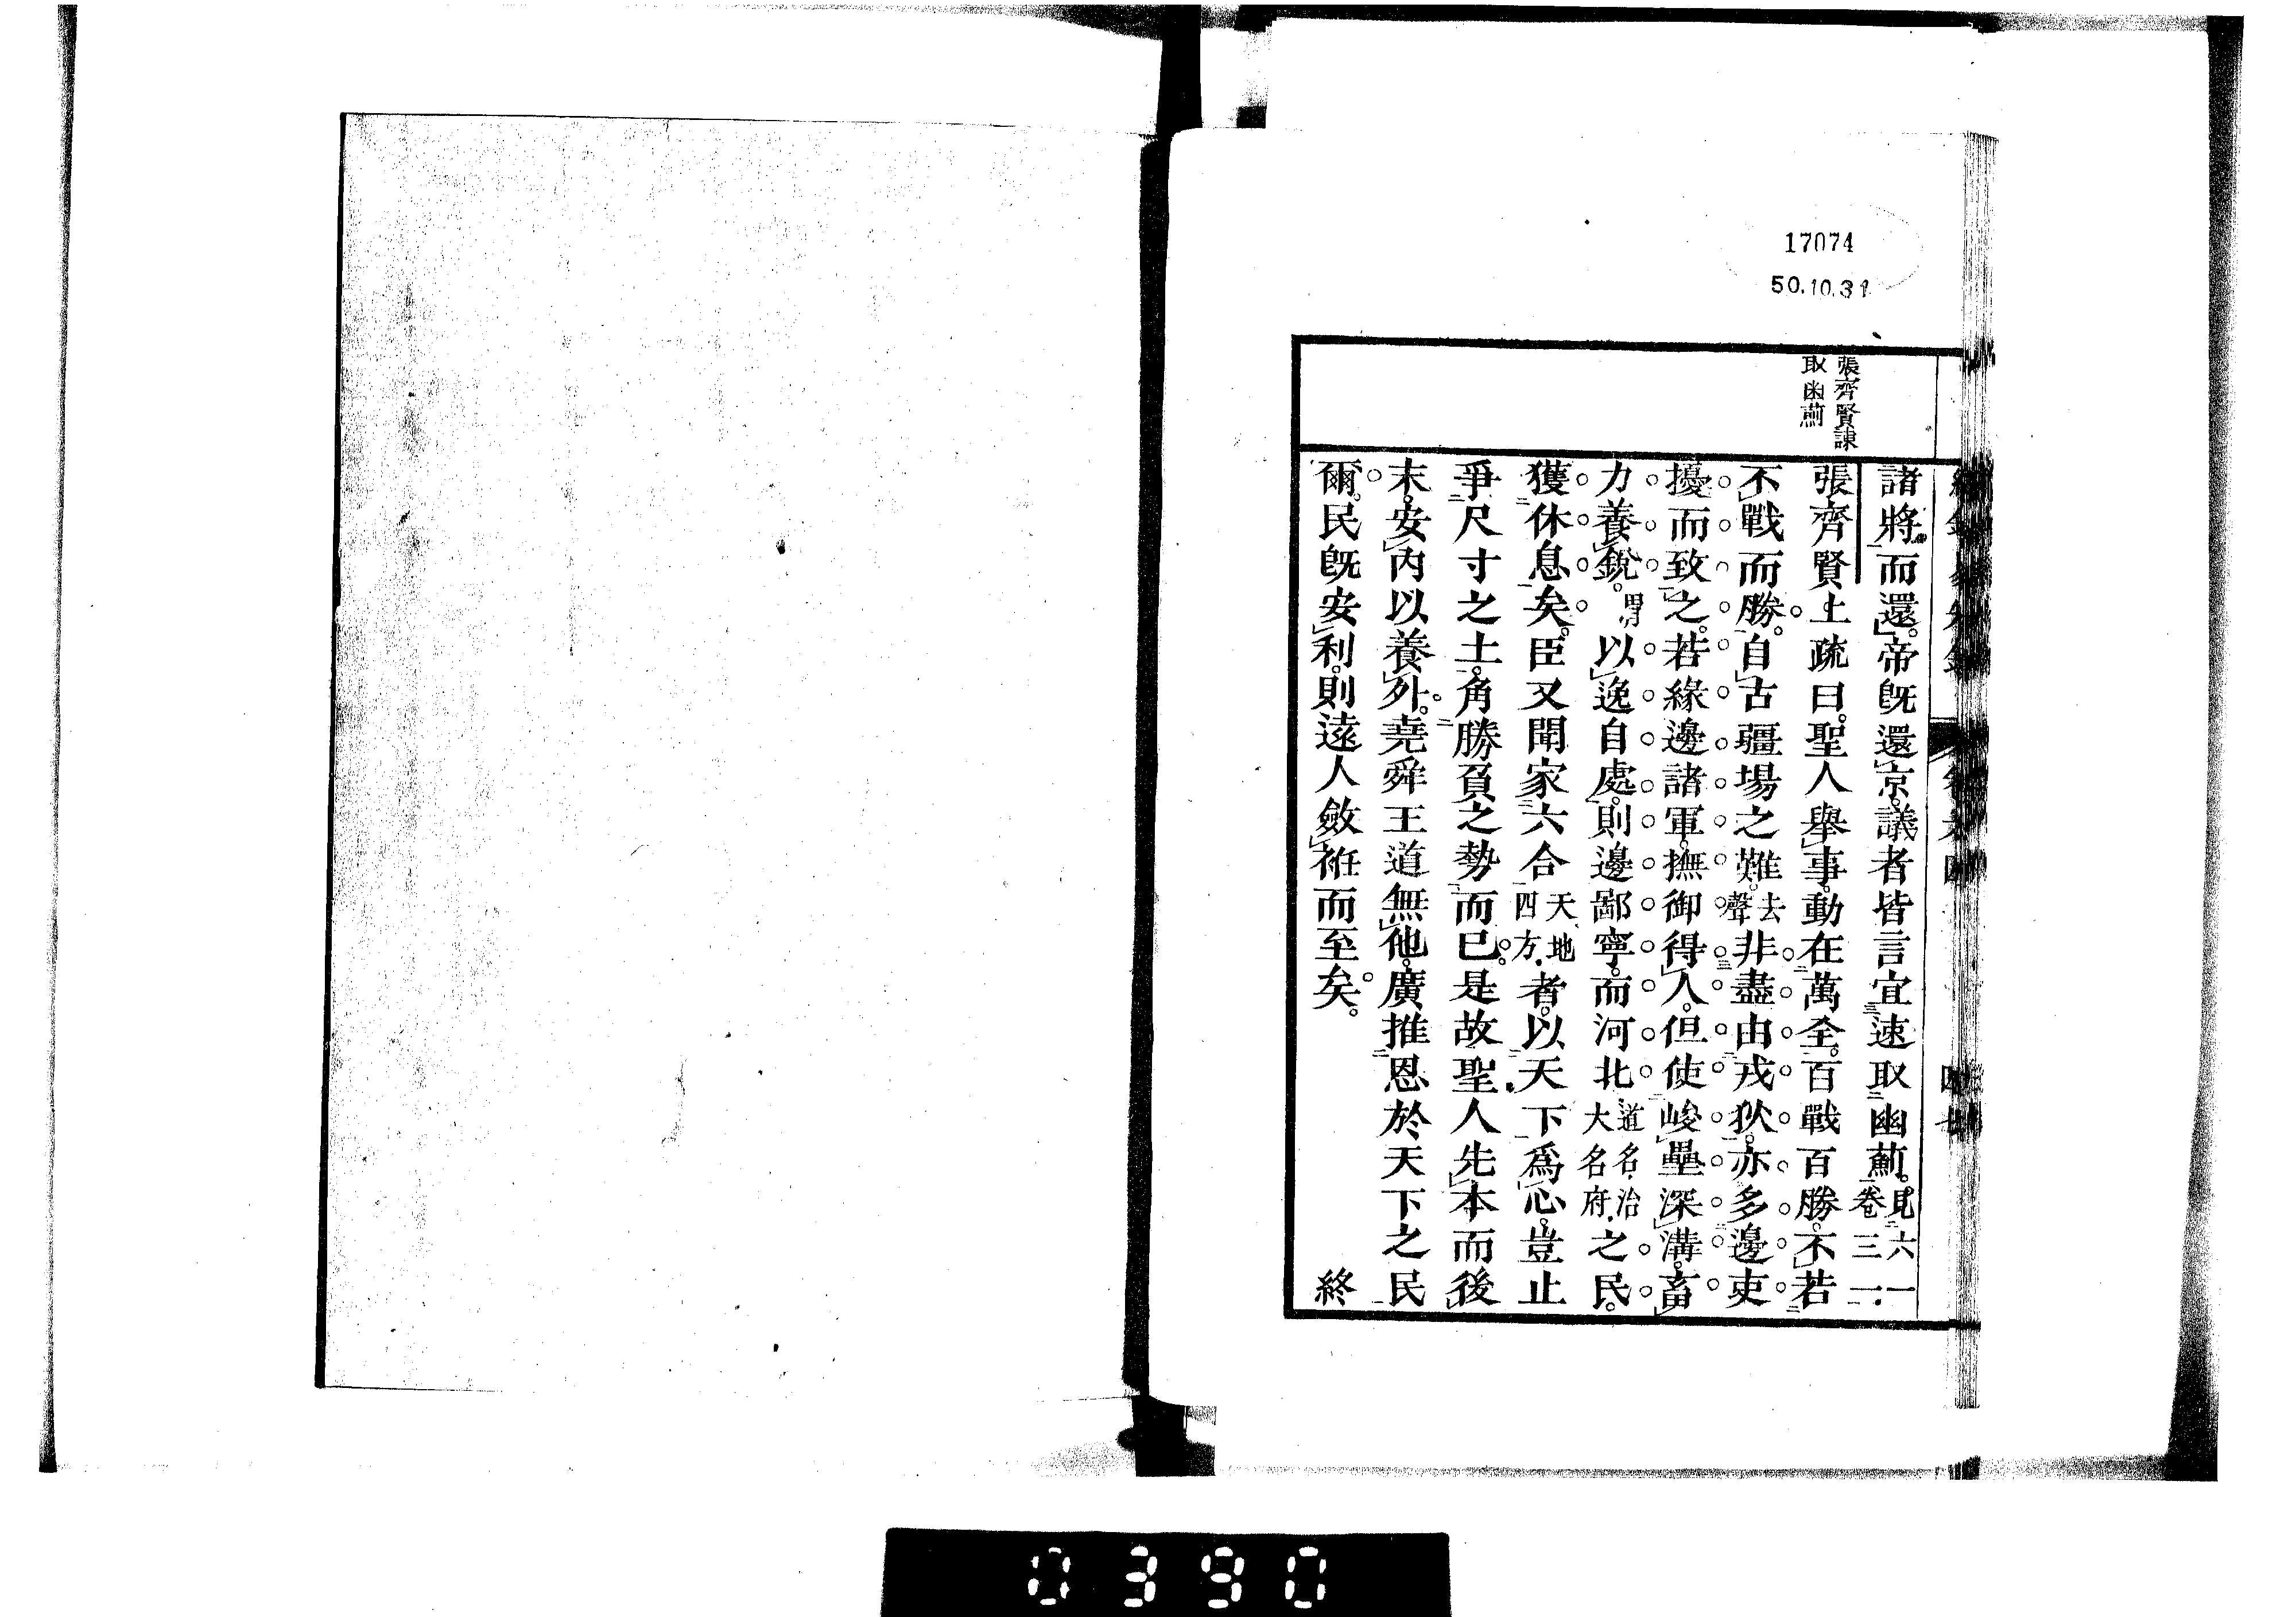 17074
50.10.31
張齊賢諌
取凾薊
諸將而還。帝既還京。議者皆言宜速取幽薊。見六一卷三一
張齊賢上疏曰。聖人舉事。動在萬全。百戰百勝。不若
不戰而勝。自古疆場之難。去聲非盡由戎狄。亦多邊吏
擾而致之。若緣邊諸軍。撫御得人。但使峻壘深溝。畜
力養銳。以逸自處。則邊鄙寧。而河北道名、治大名府之民。
獲休息矣。臣又聞家六合天地四方者。以天下爲心。豈止
爭尺寸之土。角勝負之勢而已。是故聖人先本而後
末。安內以養外。堯舜王道無他。廣推恩於天下之民
爾。民既安利。則遠人斂衽而至矣。
終
0390